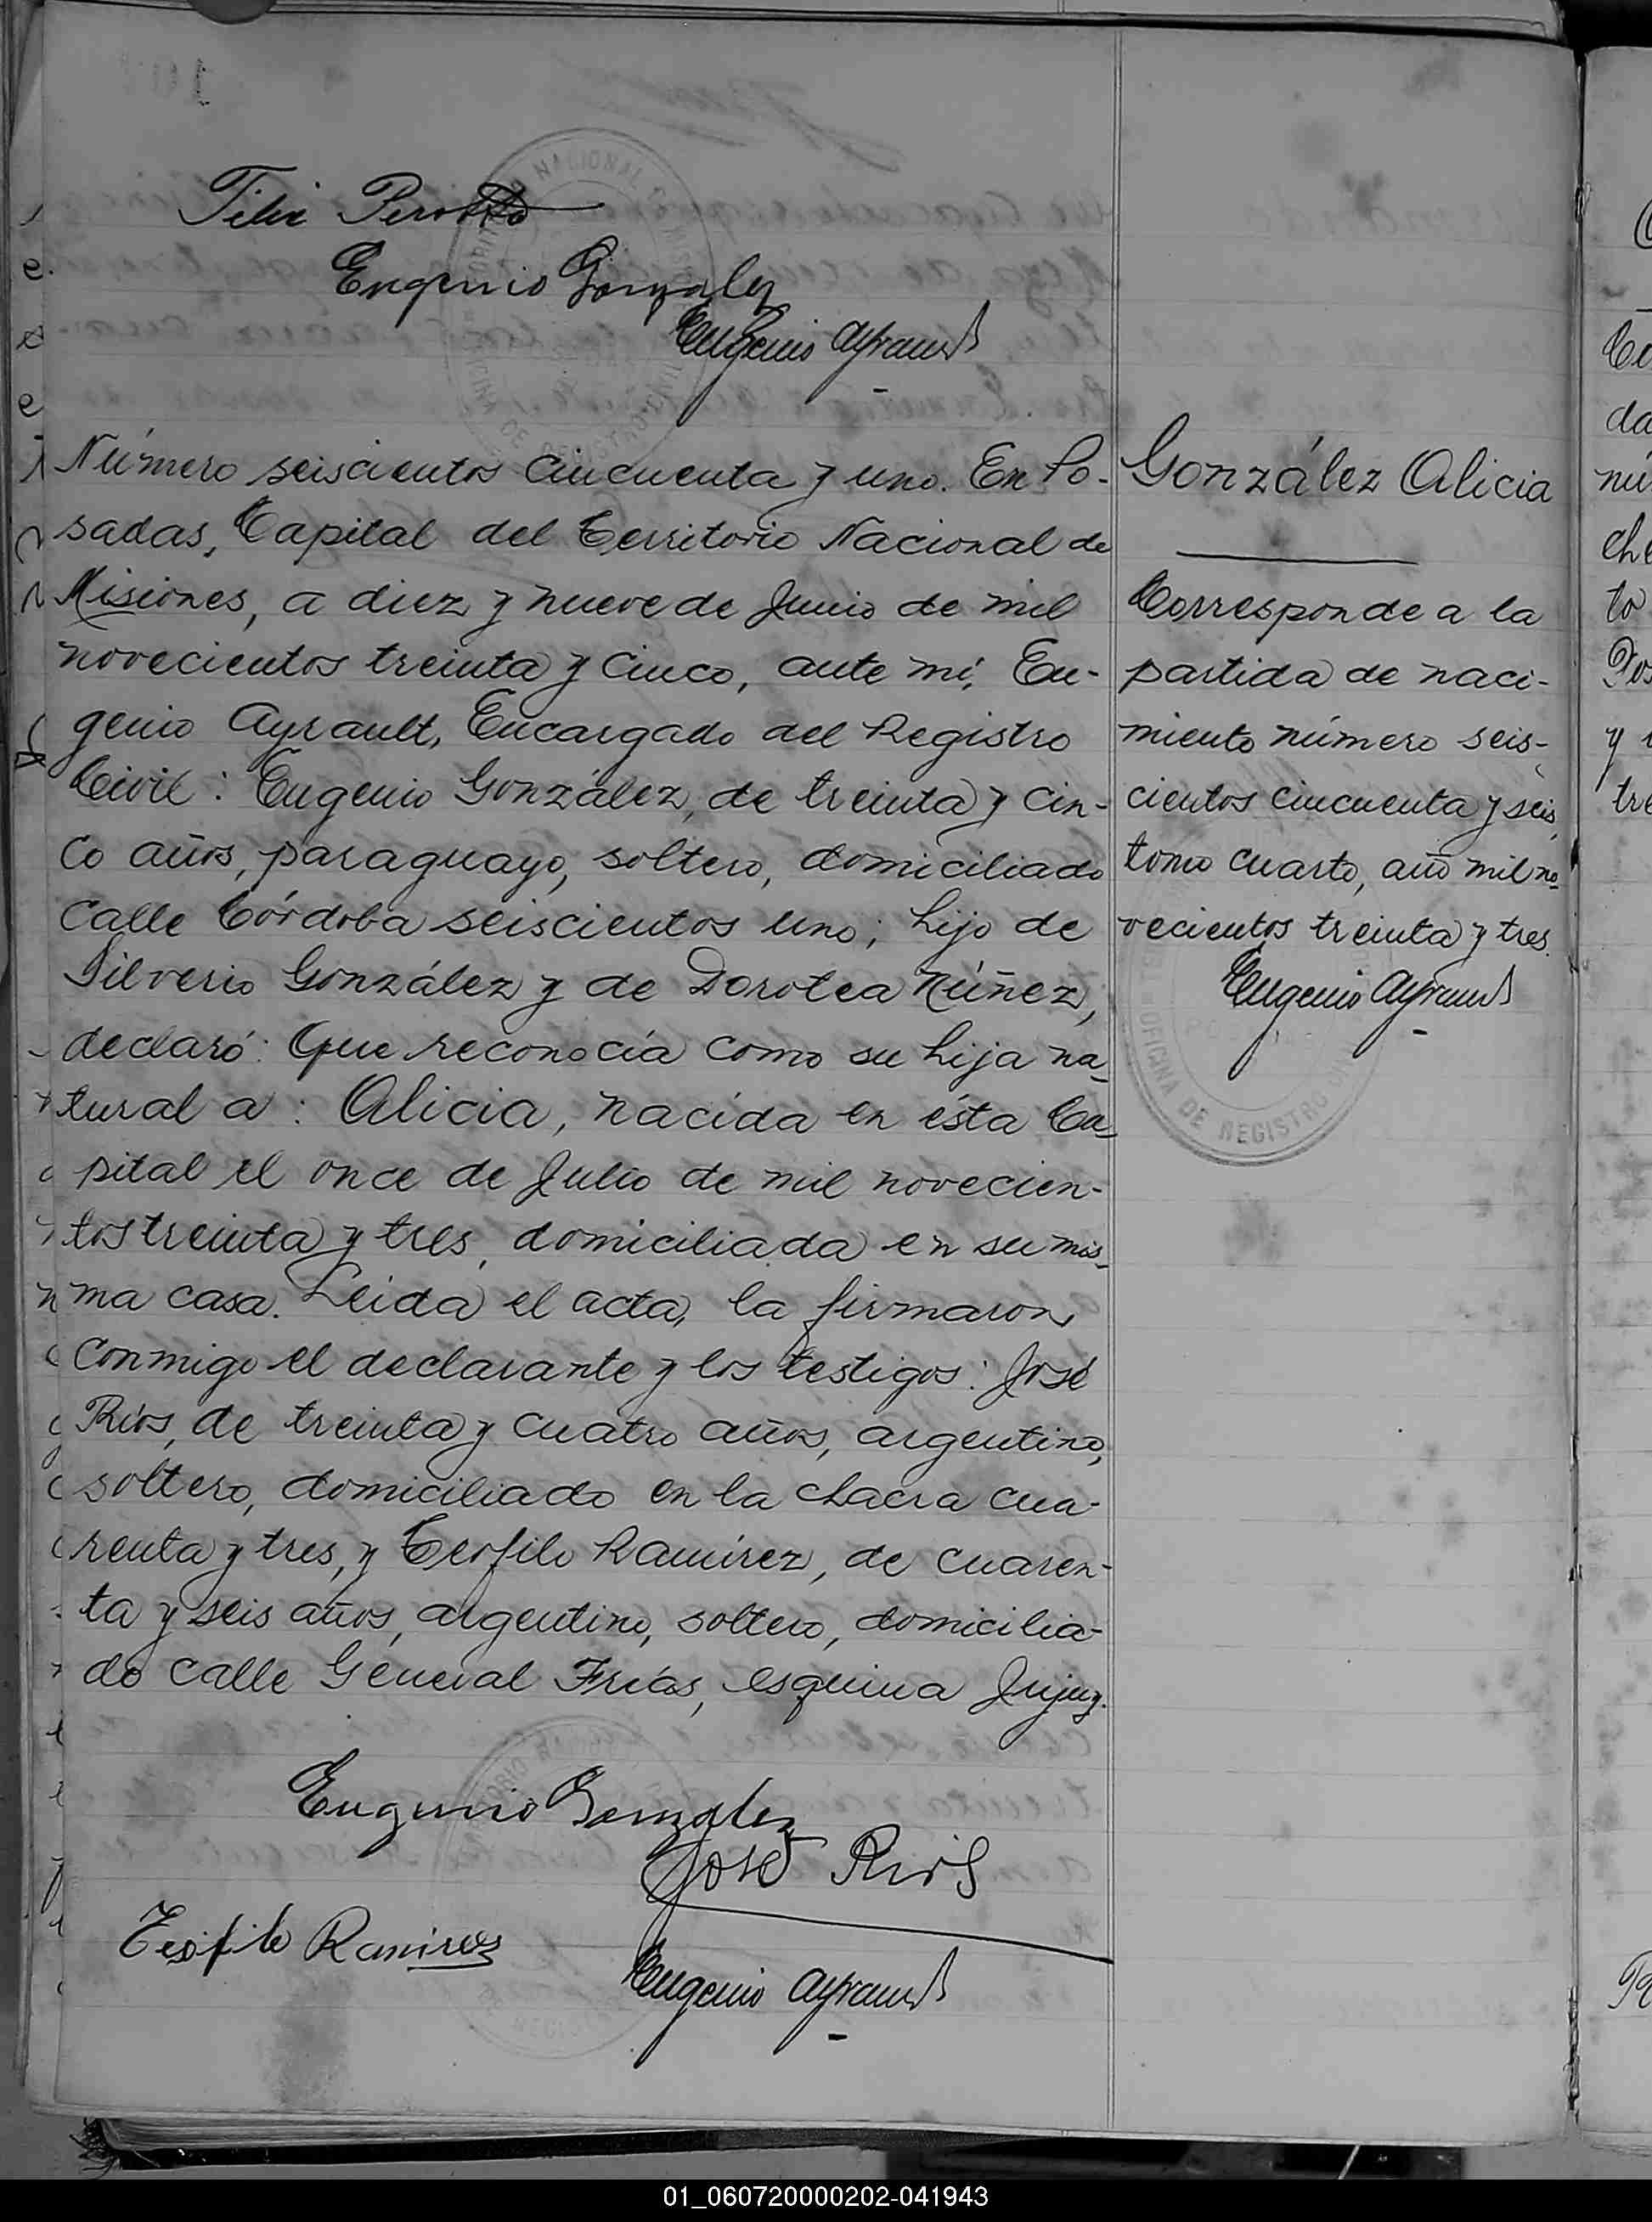 Felix Perotto
Eugenio Gonzalez
Eugenio Ayrault
Número seiscientos cincuenta y uno. En Po-
sadas, Capital del Territorio Nacional de
Misiones, a diez y nueve de Junio de mil
novecientos treinta y cinco, ante mí, Eu-
genio Ayrault, Encargado del Registro
Civil: Eugenio González, de treinta y cin-
co años, paraguayo, soltero, domiciliado
calle Córdoba seiscientos uno; hijo de
Silverio González y de Dorotea Núñez,
declaró: Que reconocía como su hija na-
tural a: Alicia, nacida en ésta Ca-
pital el once de Julio de mil novecien-
tos treinta y tres, domiciliada en su mis-
ma casa. Leída el acta, la firmaron
conmigo el declarante y los testigos: José
Ríos, de treinta y cuatro años, argentino,
soltero, domiciliado en la chacra cua-
renta y tres, y Teófilo Ramírez, de cuaren-
ta y seis años, argentino, soltero, domicilia-
do calle General Frías, esquina Jujuy.
Eugenio Gonzalez
José Rios
Teofilo Ramirez
Eugenio Ayrault
González Alicia
Corresponde a la
partida de naci-
miento número seis-
cientos cincuenta y seis,
tomo cuarto, año mil no-
vecientos treinta y tres.
Eugenio Ayrault
OFICINA DE REGISTRO CIVIL
01_060720000202-041943